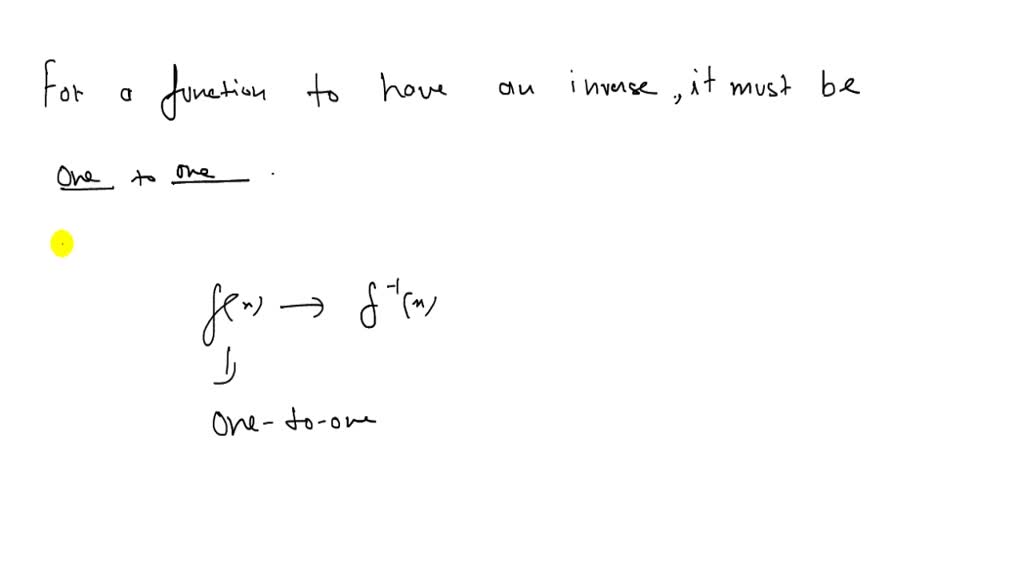 For a function to have an inverse, it must be
one to one .
f(x) → f⁻¹(x)
one-to-one